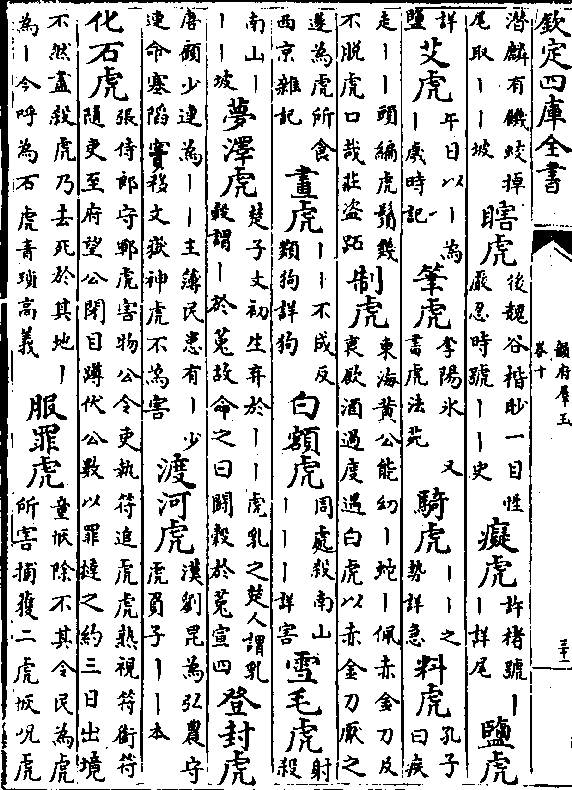 欽定四庫全書
韻府羣玉
卷十
潛麟有饑蛟掉
尾取丨丨坡
瞎虎
後魏谷楷眇一目性
嚴忍時號丨丨史
癡虎
許褚號丨
丨詳尾
鹽虎
詳
鹽
艾虎
午日以丨為
丨歲時記
筆虎
李陽氷 又
書虎法苑
騎虎
丨丨之
勢詳急
料虎
孔子
曰疾
走丨丨頭編虎鬚幾
不脱虎口哉莊盗跖
制虎
東海黄公能幻丨蛇丨佩赤金刀反
衰飲酒過度遇白虎以赤金刀厭之
邊為虎所食
西京雜記
畫虎
丨丨不成反
類狗詳狗
白額虎
周處殺南山
丨丨丨詳害
雪毛虎
射
殺
南山丨
丨丨坡
夢澤虎
楚子文初生弃於丨丨虎乳之楚人謂乳
穀謂丨於菟故命之曰鬭穀於菟宣四
登封虎
唐顧少連為丨丨主簿民患有丨少
連命塞陷穽移文嶽神虎不為害
渡河虎
漢劉昆為弘農守
虎負子丨丨本
化石虎
張侍郎守鄆虎害物公令吏執符追虎虎熟視符銜符
隨吏至府望公閉目蹲伏公數以罪撻之約三日出境
不然盡殺虎乃去死於其地丨
為丨今呼為石虎青瑣高義
服罪虎
童恢除不其令民為虎
所害捕獲二虎恢呪虎